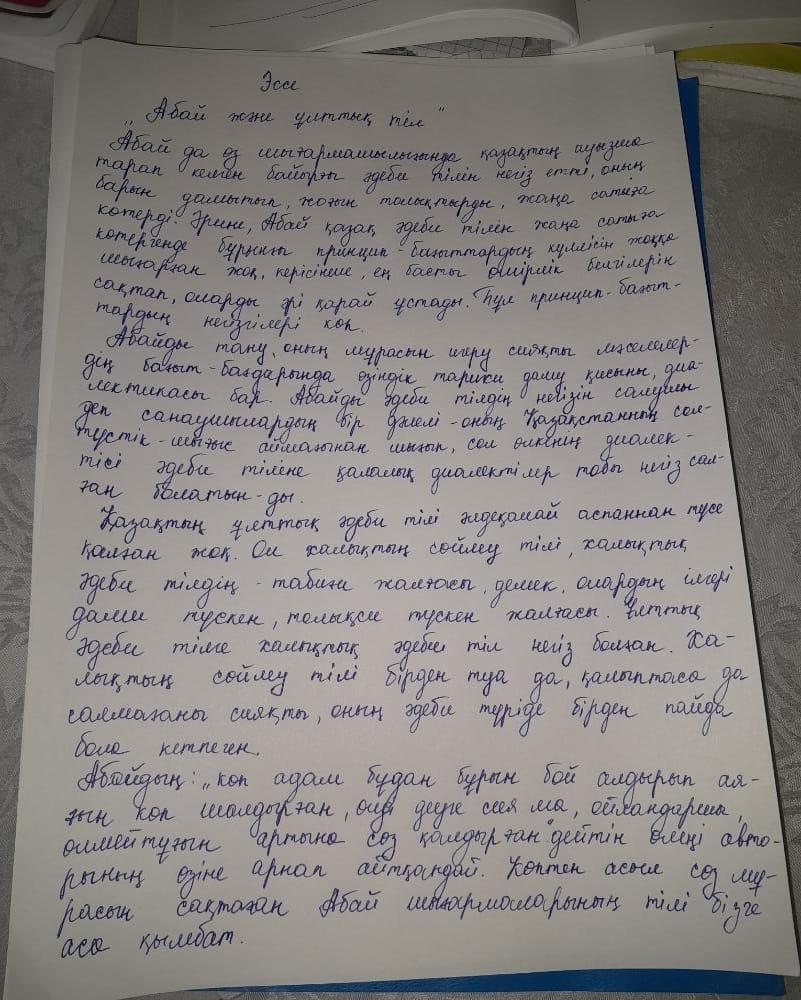 Эссе
„ Абай және ұлттық тіл "
Абай да өз шығармашылығында қазақтың ауызша
тарап келген байырғы әдеби тілін негіз етті, оның
барын дамытып, жоғын толықтырды, жаңа сатыға
көтерді. Әрине, Абай қазақ әдеби тілін жаңа сатыға
көтергенде бұрынғы принцип-бағыттардың күллісін жоққа
шығарған жоқ, керісінше, ең басты өмірлік белгілерін
сақтап, оларды әрі қарай ұстады. Бұл принцип-бағыт-
тардың негізгілері көп.
Абайды тану, оның мұрасын игеру сияқты мәселелер-
дің бағыт-бағдарында өзіндік тарихи даму қисыны, диа-
лектикасы бар. Абайды әдеби тілдің негізін салушы
деп санаушылардың бір дәлелі - оның Қазақстанның сол-
түстік-шығыс аймағынан шығып, сол өлкенің диалек-
тісі әдеби тіліне қалалық диалектілер тобы негіз сал-
ған болатын-ды.
Қазақтың ұлттық әдеби тілі әлдеқалай аспаннан түсе
қалған жоқ. Ол халықтың сөйлеу тілі, халықтық
әдеби тілдің - табиғи жалғасы, демек, олардың ілгері
дами түскен, толықси түскен жалғасы. Ұлттық
әдеби тілге халықтық әдеби тіл негіз болған. Ха-
лықтың сөйлеу тілі бірден туа да, қалыптаса да
салмағаны сияқты, оның әдеби түріде бірден пайда
бола кетпеген.
Абайдың: „көп адам бұдан бұрын бой алдырып ая-
ғын көп шалдырған, өлді деуге сия ма, ойландаршы,
өлмейтұғын артына сөз қалдырған" дейтін өлеңі авто-
рының өзіне арнап айтқандай. Көптен асыл сөз мұ-
расын сақтаған Абай шығармаларының тілі бізге
аса қымбат.